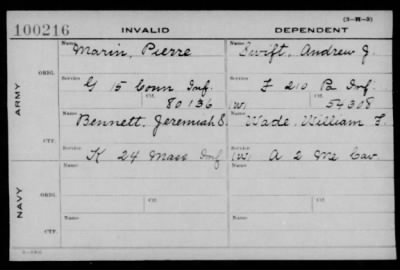 (3-H-3)
100216 INVALID DEPENDENT
ARMY
ORIG.
Name Marin, Pierre
Name Swift, Andrew J.
Service G 15 Conn Inf.
Ctf. 80136
Service F 210 Pa Inf.
(W) Ctf. 54308
CTF.
Name Bennett, Jeremiah S.
Name Wade, William F.
Service K 24 Mass Inf
Service (W) A 2 Me Cav.
NAVY
ORIG.
Name
Name
Service
Ctf.
Service
Ctf.
CTF.
Name
Name